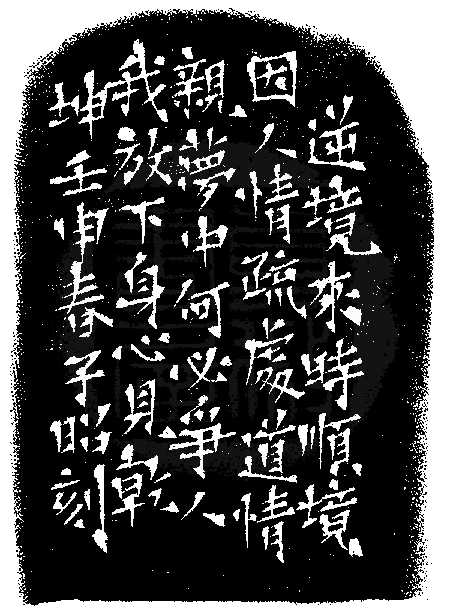 逆境來時順境
因人情疏處道情
親夢中何必爭人
我放下身心見乾
坤壬申春子昭刻